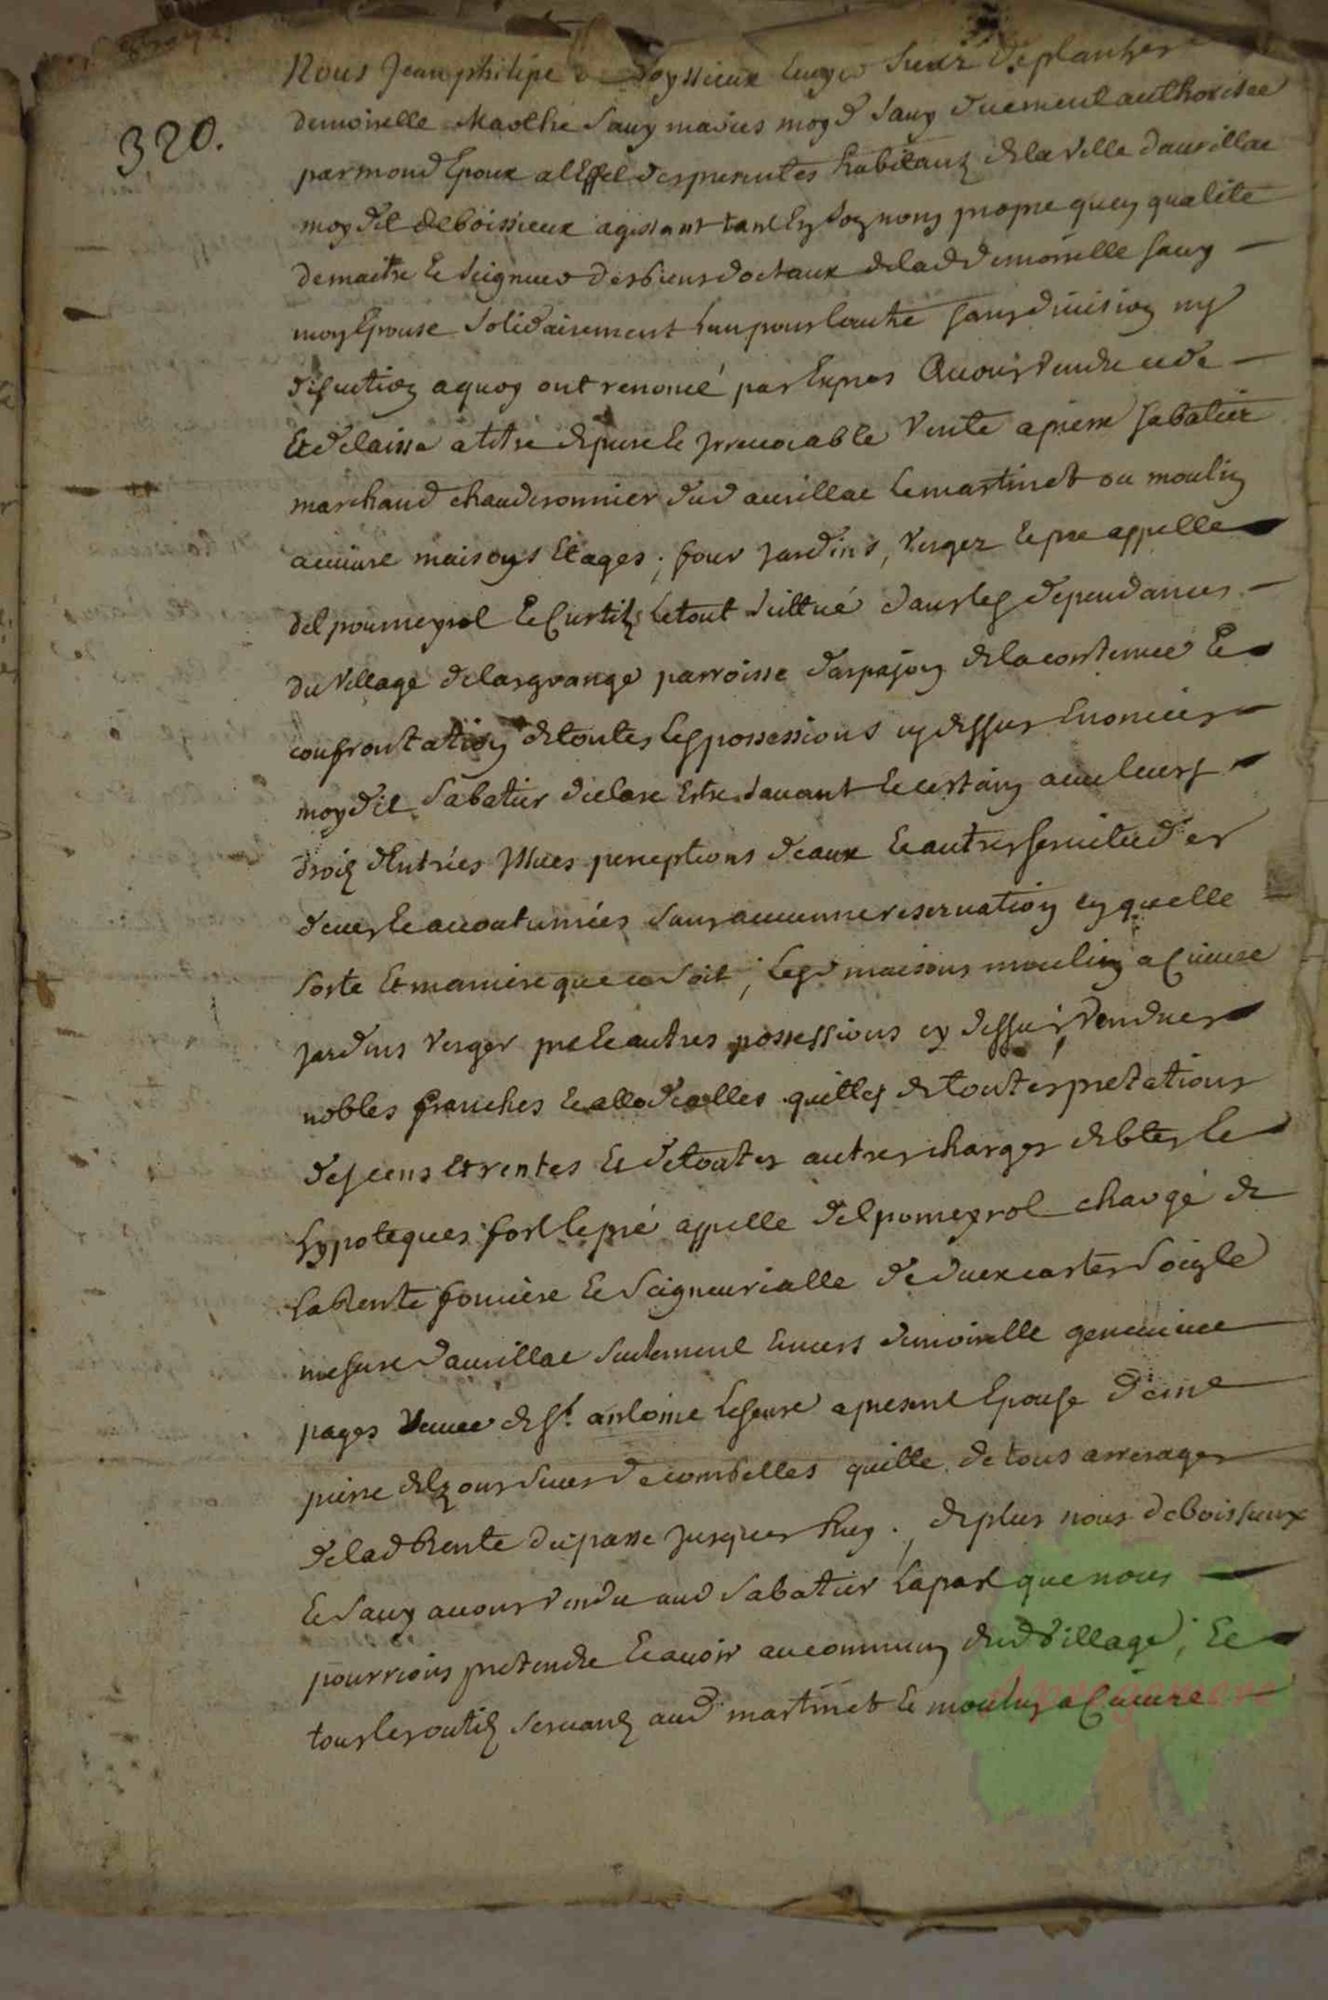 320.
Nous Jean philipe de Boyssieux Ecuyer Sieur Deplanher
demoiselle Marthe Saux maries moyd Saux duement authorisee
par mond Epoux a lEffet des presentes habitans dela Ville daurillac
moy dit deboissieux agissant tant En Son nom propre quen qualite
demaitre Et Seigneur des biens doctaux delad demoiselle Saux
mon Epouse Solidairement Lun pour lautre Sans division ny
discution aquoy ont renoncé par Expres Avons vendu cede
Et delaisse a titre de pure Et Jrrevocable Vente a pierre Sabatier
marchand chauderonnier dud aurillac Le martinet ou moulin
acuivre maisons Etages, four Jardins, Verger Et pre appelle
del poumeyrol Et Curtil, Le tout Scittué dans les dependances
du Village delasgrange parroisse darpajon dela contenue Et
confrontation de toutes les possessions cy dessus Enoncées
moy dit Sabatier declare Estre Savant Et certain avec leurs
droits dEntrées Jssues perceptions deaux Et autres servitudes
deues Et accoutumées Sans aucunne reservation en quelle
Sorte Et maniere que ce Soit, Lesd maisons moulin a Cuivre
Jardins Verger pre Et autres possessions cy dessus Vendues
nobles franches Et allodealles quittes de toutes prestations
de cens Et rentes Et de toutes autres charges debtes Et
hypoteques forst le pré appelle del pomeyrol chargé de
La Rente fonciere Et Seigneurialle de deux cartes Soigle
mesure daurillac Seulement Envers demoiselle genevieve
pages Veuve de Sr. antoine Leseure a present Epouse dame
pierre delzons Sieur de combelles quitte de tous arrerages
delad Rente du passe Jusques huy. de plus nous deboissieux
Et Saux avons Vendu aud Sabatier La part que nous
pourrions pretendre Et avoir au commun dud Village, Et
tous les outils Servans aud martinet Et moulin a Cuivre